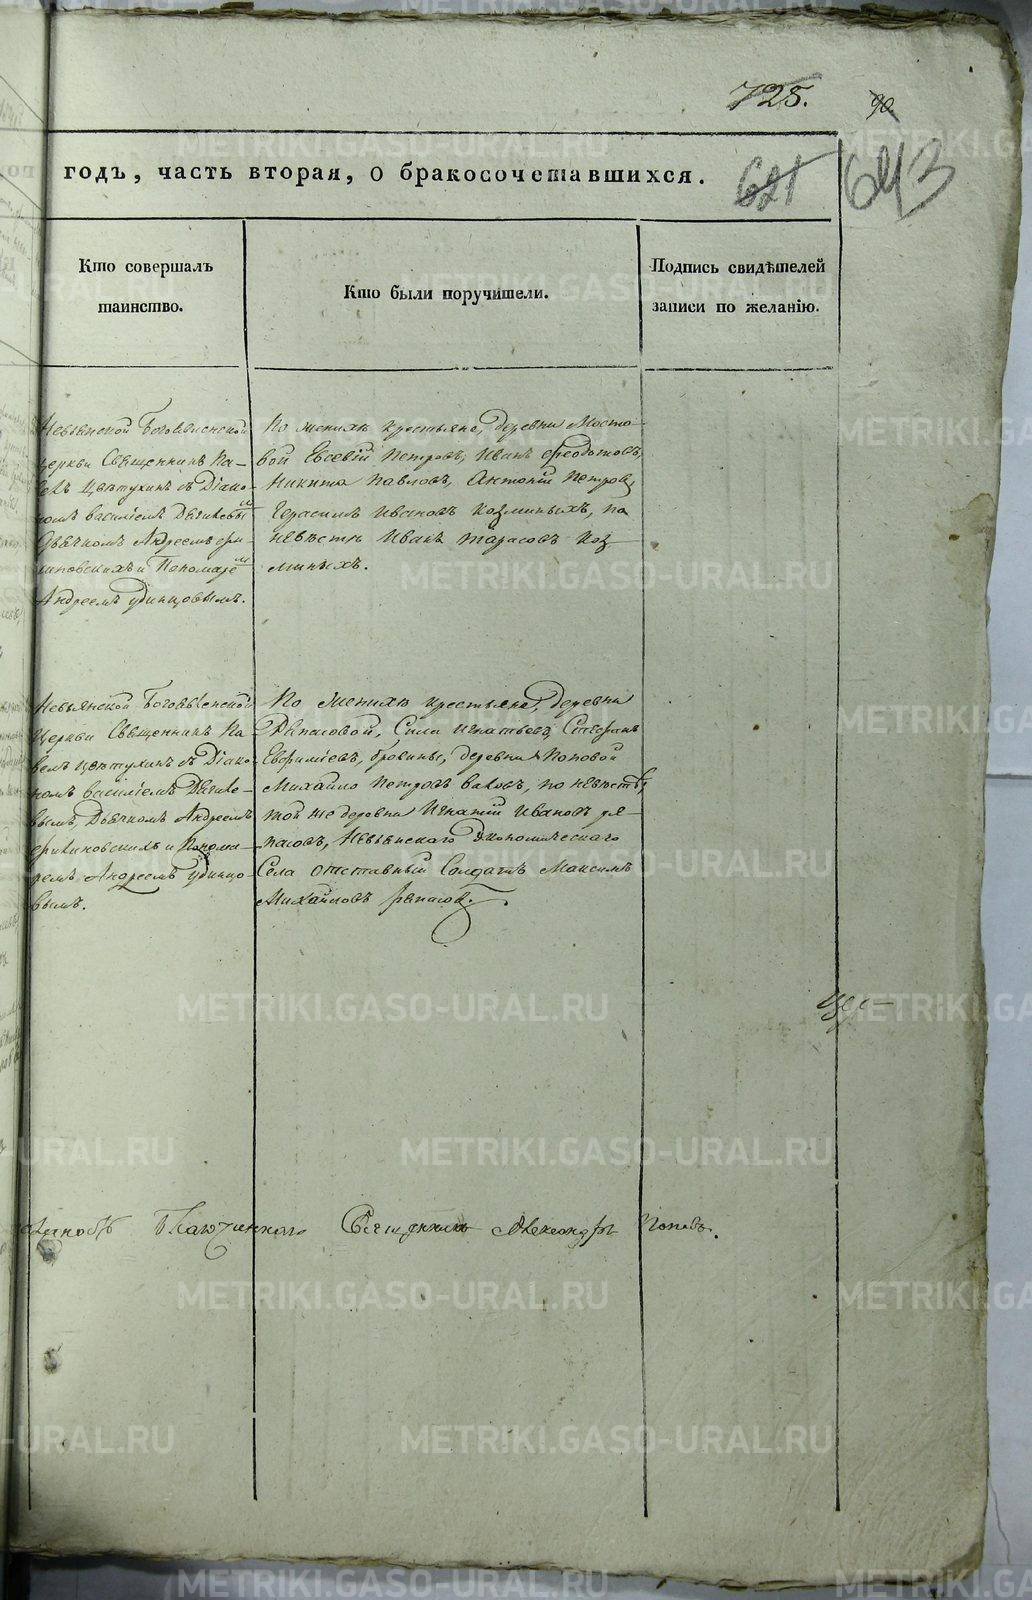 725.
90.
годъ, часть вторая, о бракосочетавшихся.
621
643
Кто совершалъ
таинство.
Кто были поручители.
Подпись свидѣтелей
записи по желанію.
Невьянской Богоявленской
церкви Священникъ Па-
велъ Цвѣтухинъ съ Діако-
номъ Василіемъ
Дьячкомъ Андреемъ
и Пономаремъ
Андреемъ Удинцовымъ.
По женихѣ крестьяне, деревни Мосто-
вой Евсевій Петровъ, Иванъ Федотовъ,
Никита Павловъ, Антоній Петровъ,
Герасимъ Ивановъ Козминыхъ, по
невѣстѣ Иванъ Тарасовъ Коз-
миныхъ.
Невьянской Богоявленской
Церкви Священникъ Па-
велъ Цвѣтухинъ съ Діако-
номъ Василіемъ
Дьячкомъ Андреемъ
и Понома-
ремъ Андреемъ Удинцо-
вымъ.
По женихѣ крестьяне, деревни
Сила Игнатьевъ, Стефанъ
деревни Поповой
Михайло Петровъ по невѣстѣ,
той же деревни Игнатій Ивановъ
Невьянскаго Экономическаго
Села отставный Солдатъ Максимъ
Михайловъ
Священникъ Александръ Поповъ.
METRIKI.GASO-URAL.RU